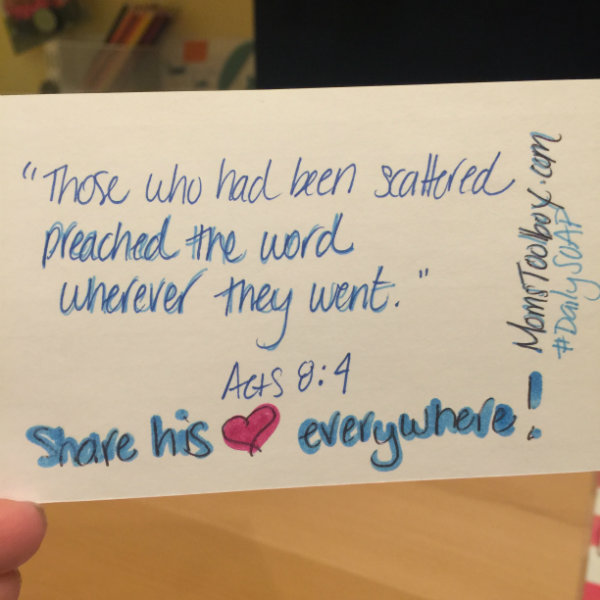 "Those who had been scattered
preached the word
wherever they went."
Acts 8:4
Share his ❤ everywhere!
MomsToolbox.com
#DailySOAP